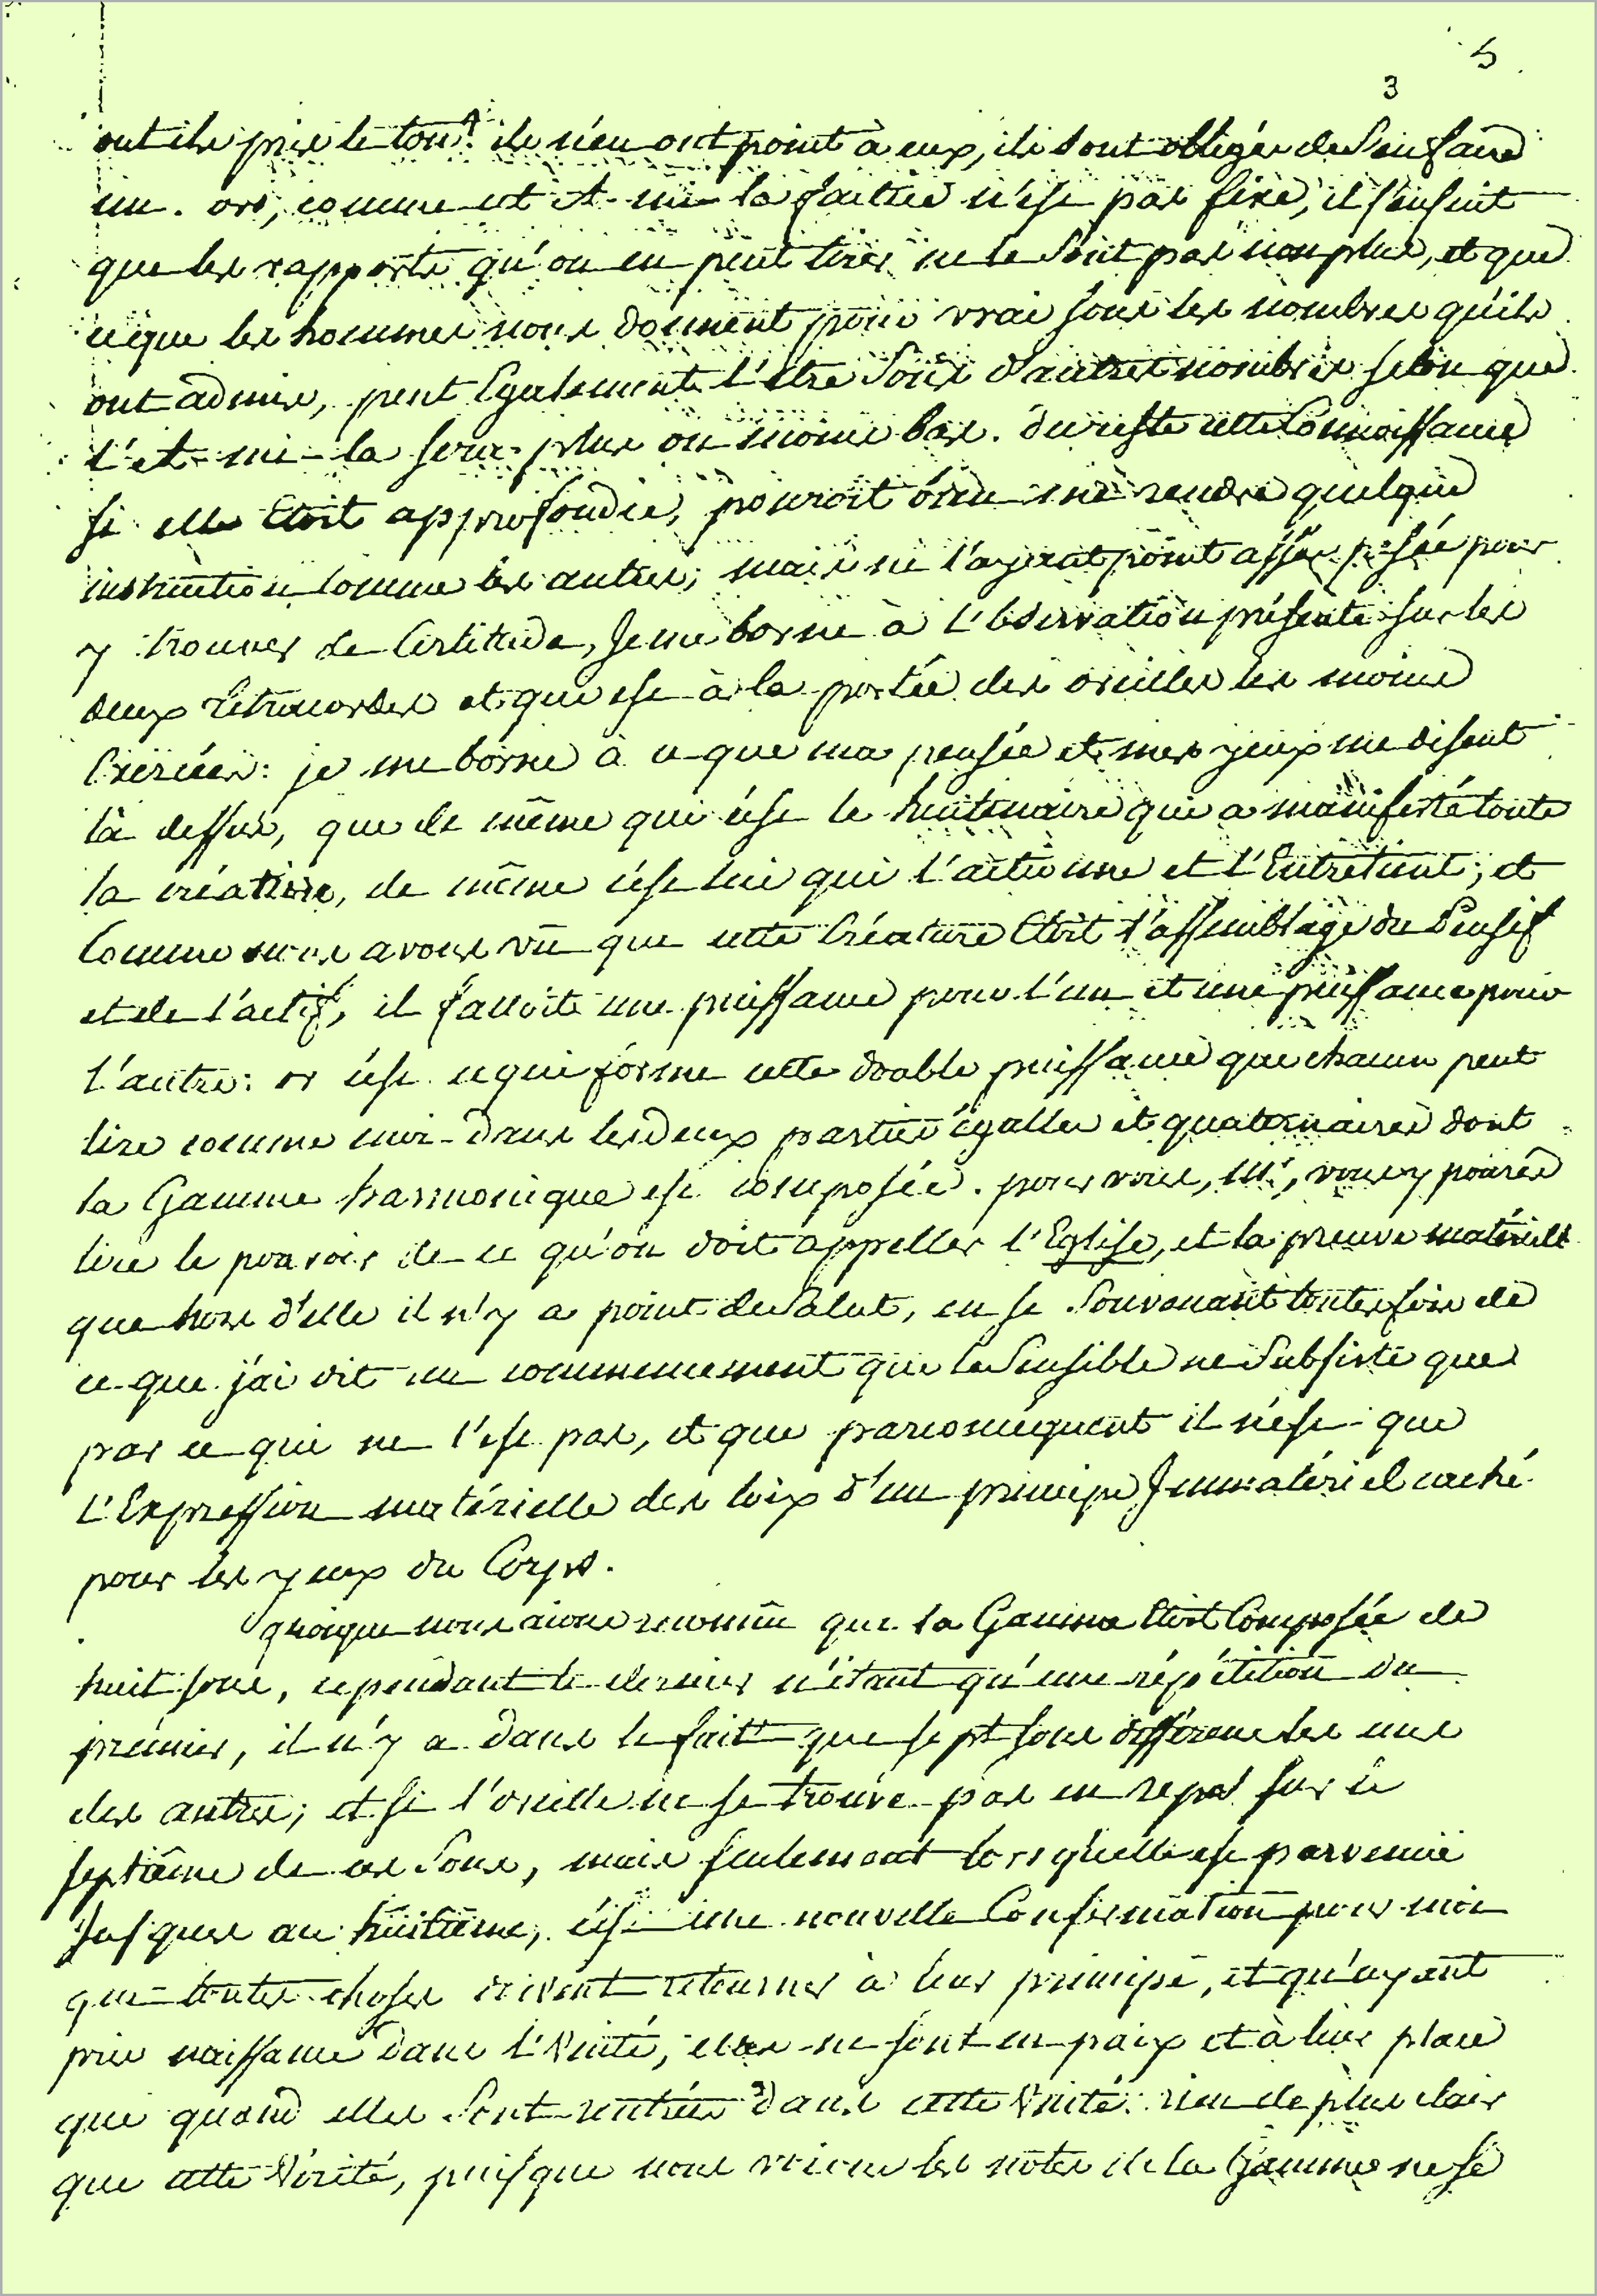 5
3
ont ils pris le ton? ils n'en ont point à eux, ils sont obligés de s'en faire
un. or, comme cet A-mi-la factice n'est pas fixe, il s'ensuit
que les rapports qu'on en peut tirer ne le sont pas non plus, et que
ce que les hommes nous donnent pour vrai sous les nombres qu'ils
ont admis, peut Egalement l'être sous d'autres nombres selon que
l'et-mi-la sera plus ou moins bas. du reste cette Connoissance
si elle Etoit approfondie, pouroit bien me rendre quelque
instruction comme les autres; mais ne l'ayant point assés pesée pour
y trouver de Certitude, Je me borne à l'observation présente sur les
deux tétracordes et que est à la portée des oreilles les moins
Exercées: je me borne à ce que ma pensée et mes yeux me disent
là dessus, que de même que c'est le huitenaire qui a manifesté toute
la création, de même c'est lui qui l'actionne et l'Entretient; et
Comme nous avons vû que cette Créature Etoit l'assemblage du Pensif
et de l'actif, il falloit une puissance pour l'un et une puissance pour
l'autre: or c'est ce qui forme cette double puissance que chacun peut
lire comme moi dans les deux parties égalles et quaternaires dont
la Gamme harmonique est composée. pour vous, M<sup>r</sup>, vous y pourés
lire le pouvoir de ce qu'on doit appeller l'Eglise, et la preuve matérielle
que hors d'elle il n'y a point de Salut, en se souvenant toutesfois de
ce que j'ai dit au commencement que le Sensible ne Subsiste que
par ce qui ne l'est pas, et que parconséquent il n'est que
l'Expression matérielle des loix d'un principe Immatériel caché
pour les yeux du Corps.
quoique nous aions reconnû que la Gamme Etoit Composée de
huit sons, cependant le dernier n'étant qu'une répétition du
premier, il n'y a dans le fait que sept sons différens les uns
des autres; et si l'oreille ne se trouve pas en repos sur le
septième de ces Sons, mais seulement lorsqu'elle est parvenue
Jusques au huitième, c'est une nouvelle Confirmation pour moi
que toutes choses doivent retourner à leur principe, et qu'ayant
pris naissance dans l'Unité, elles ne sont en paix et à leur place
que quand elles Sont rentrées dans cette Unité: rien de plus clair
que cette Vérité, puisque nous voions les notes de la Gamme ne se